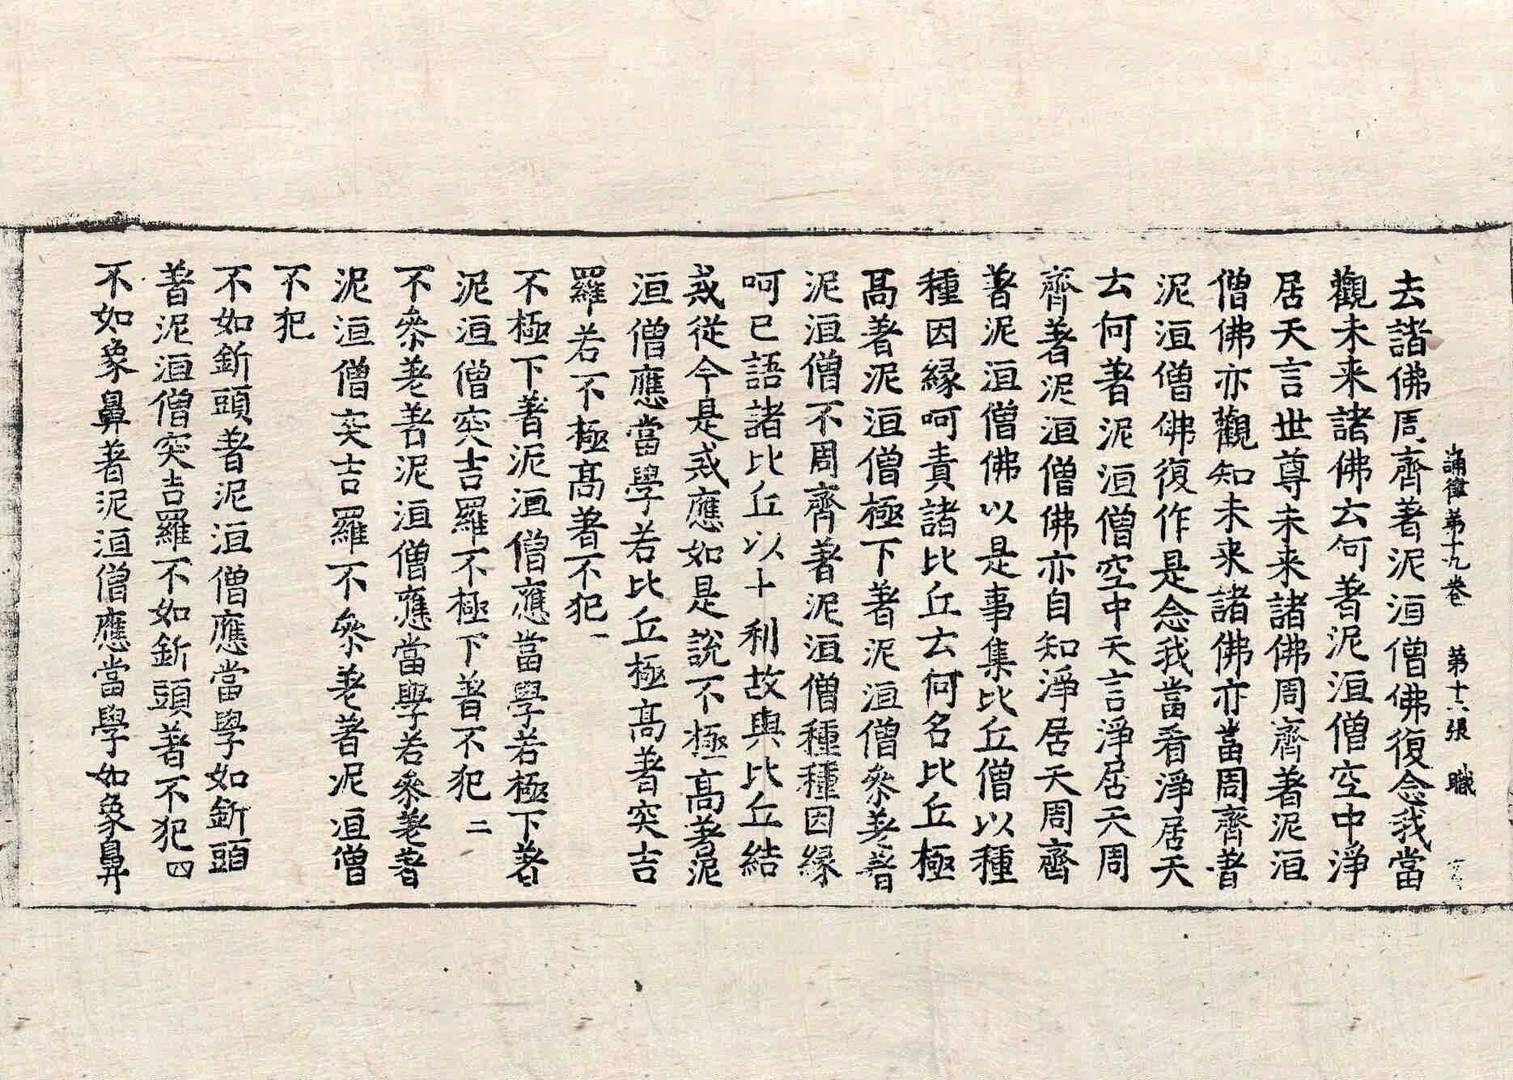 誦律第十九卷 第十六張 職
去諸佛周齊著泥洹僧佛復念我當
觀未来諸佛云何著泥洹僧空中淨
居天言世尊未来諸佛周齊著泥洹
僧佛亦觀知未来諸佛亦當周齊著
泥洹僧佛復作是念我當看淨居天
云何著泥洹僧空中天言淨居天周
齊著泥洹僧佛亦自知淨居天周齊
著泥洹僧佛以是事集比丘僧以種
種因縁呵責諸比丘云何名比丘極
髙著泥洹僧極下著泥洹僧叅差著
泥洹僧不周齊著泥洹僧種種因縁
呵已語諸比丘以十利故與比丘結
戒從今是戒應如是說不極髙著泥
洹僧應當學若比丘極髙著突吉
羅若不極髙著不犯一
不極下著泥洹僧應當學若極下著
泥洹僧突吉羅不極下著不犯二
不叅差著泥洹僧應當學若叅差著
泥洹僧突吉羅不叅差著泥洹僧
不犯
不如釿頭著泥洹僧應當學如釿頭
著泥洹僧突吉羅不如釿頭著不犯四
不如象鼻著泥洹僧應當學如象鼻